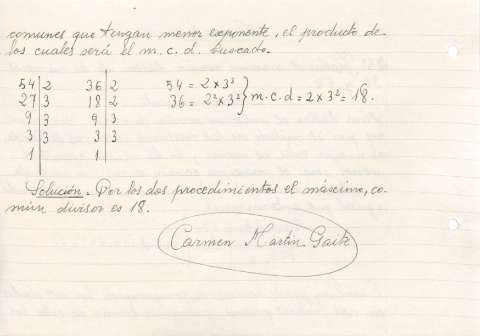 comunes que tengan menor exponente, el producto de
los cuales será el m.c.d. buscado.
54 | 2 36 | 2 54 = 2 × 3³
27 | 3 18 | 2 36 = 2² × 3² } m.c.d = 2 × 3² = 18.
9 | 3 9 | 3
3 | 3 3 | 3
1 | 1 |
Solución. Por los dos procedimientos el máximo, co-
mún divisor es 18.
Carmen Martín Gaite